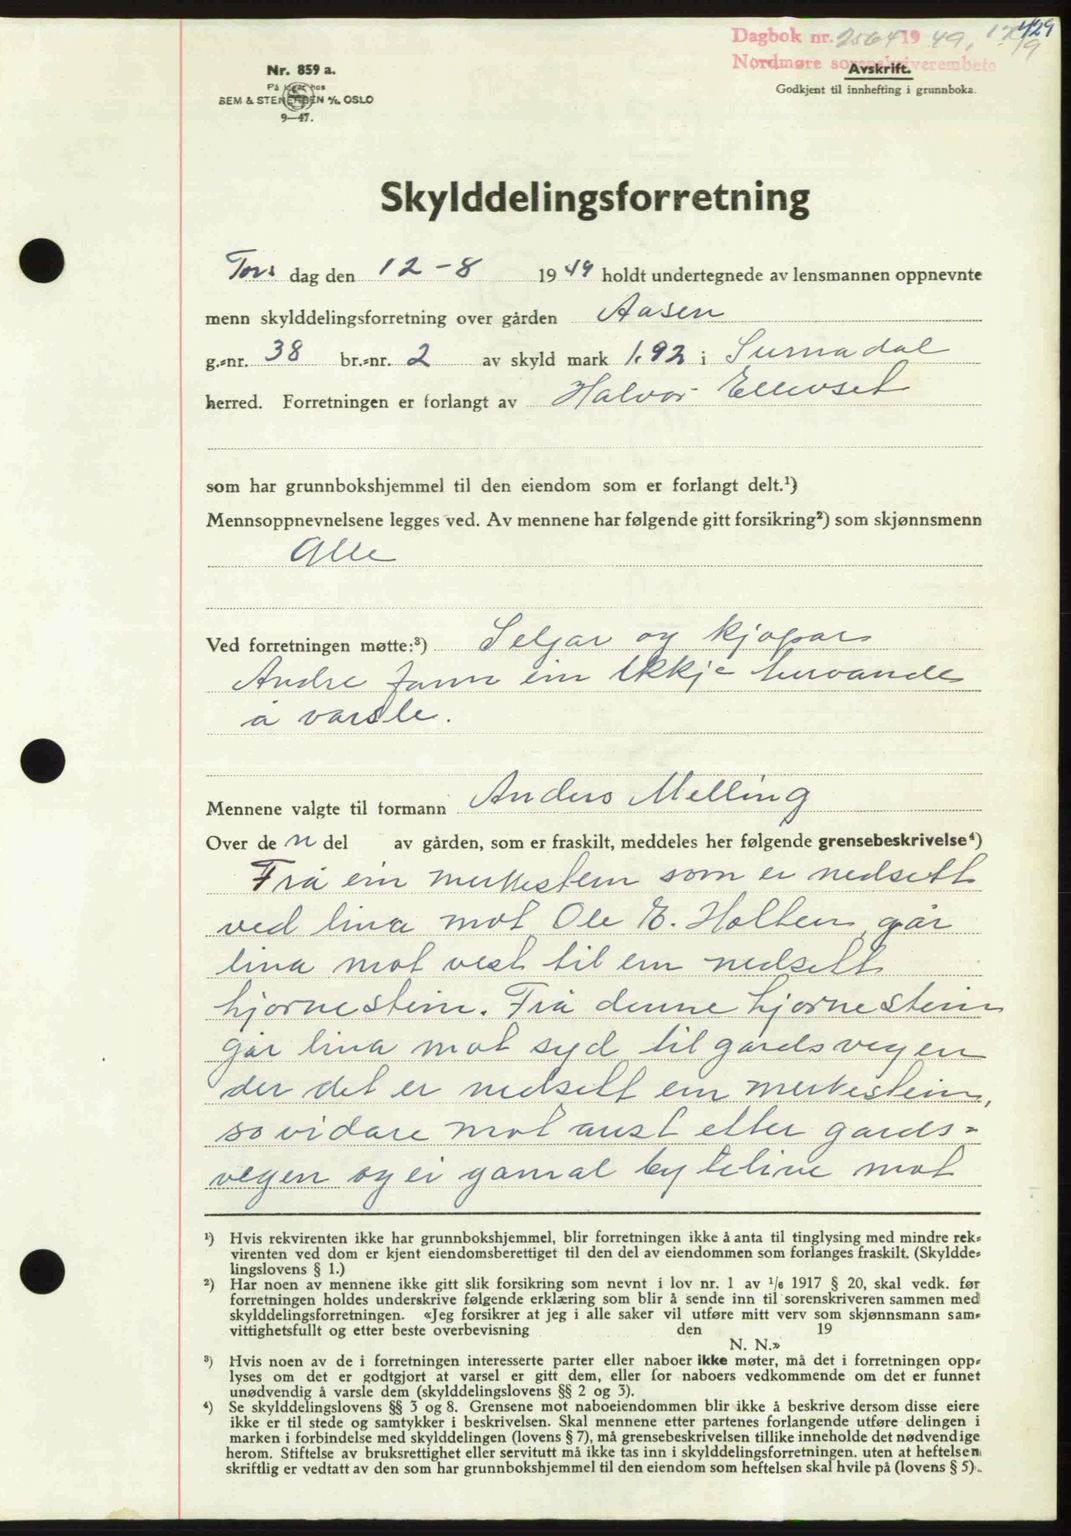 429
Dagbok nr. 2564 19 49, 12/9
Nordmøre sorenskriverembete
Avskrift.
Godkjent til innhefting i grunnboka.
Nr. 859 a.
På lager hos
SEM & STENERSEN A/S, OSLO
9—47.
Skylddelingsforretning
Tors dag den 12-8 1949 holdt undertegnede av lensmannen oppnevnte
menn skylddelingsforretning over gården Aasen
g.-nr. 38 br.-nr. 2 av skyld mark 1.92 i Surnadal
herred. Forretningen er forlangt av Halvor Ellevset
som har grunnbokshjemmel til den eiendom som er forlangt delt.¹)
Mennsoppnevnelsene legges ved. Av mennene har følgende gitt forsikring²) som skjønnsmenn
Alle
Ved forretningen møtte:³) Seljar og kjøpar
Andre fann ein ikkje turvande
å varsle.
Mennene valgte til formann Anders Melling
Over de n del av gården, som er fraskilt, meddeles her følgende grensebeskrivelse⁴)
Frå ein merkestein som er nedsett
ved lina mot Ole E. Holten, går
lina mot vest til ein nedsett
hjørnestein. Frå denne hjørnestein
går lina mot syd til gardsvegen
der det er nedsett ein merkestein,
so vidare mot aust etter gards-
vegen og ei gamal byteline mot
¹) Hvis rekvirenten ikke har grunnbokshjemmel, blir forretningen ikke å anta til tinglysing med mindre rek-
virenten ved dom er kjent eiendomsberettiget til den del av eiendommen som forlanges fraskilt. (Skyldde-
lingslovens § 1.)
²) Har noen av mennene ikke gitt slik forsikring som nevnt i lov nr. 1 av 1/6 1917 § 20, skal vedk. før
forretningen holdes underskrive følgende erklæring som blir å sende inn til sorenskriveren sammen med
skylddelingsforretningen. «Jeg forsikrer at jeg i alle saker vil utføre mitt verv som skjønnsmann sam-
vittighetsfullt og etter beste overbevisning den 19
N. N.»
³) Hvis noen av de i forretningen interesserte parter eller naboer ikke møter, må det i forretningen opp-
lyses om det er godtgjort at varsel er gitt dem, eller for naboers vedkommende om det er funnet
unødvendig å varsle dem (skylddelingslovens §§ 2 og 3).
⁴) Se skylddelingslovens §§ 3 og 8. Grensene mot naboeiendommen blir ikke å beskrive dersom disse eiere
ikke er til stede og samtykker i beskrivelsen. Skal mennene etter partenes forlangende utføre delingen i
marken i forbindelse med skylddelingen (lovens § 7), må grensebeskrivelsen tillike inneholde det nødvendige
herom. Stiftelse av bruksrettighet eller servitutt må ikke tas inn i skylddelingsforretningen, uten at heftelsen
skriftlig er vedtatt av den som har grunnbokshjemmel til den eiendom som heftelsen skal hvile på (lovens § 5).